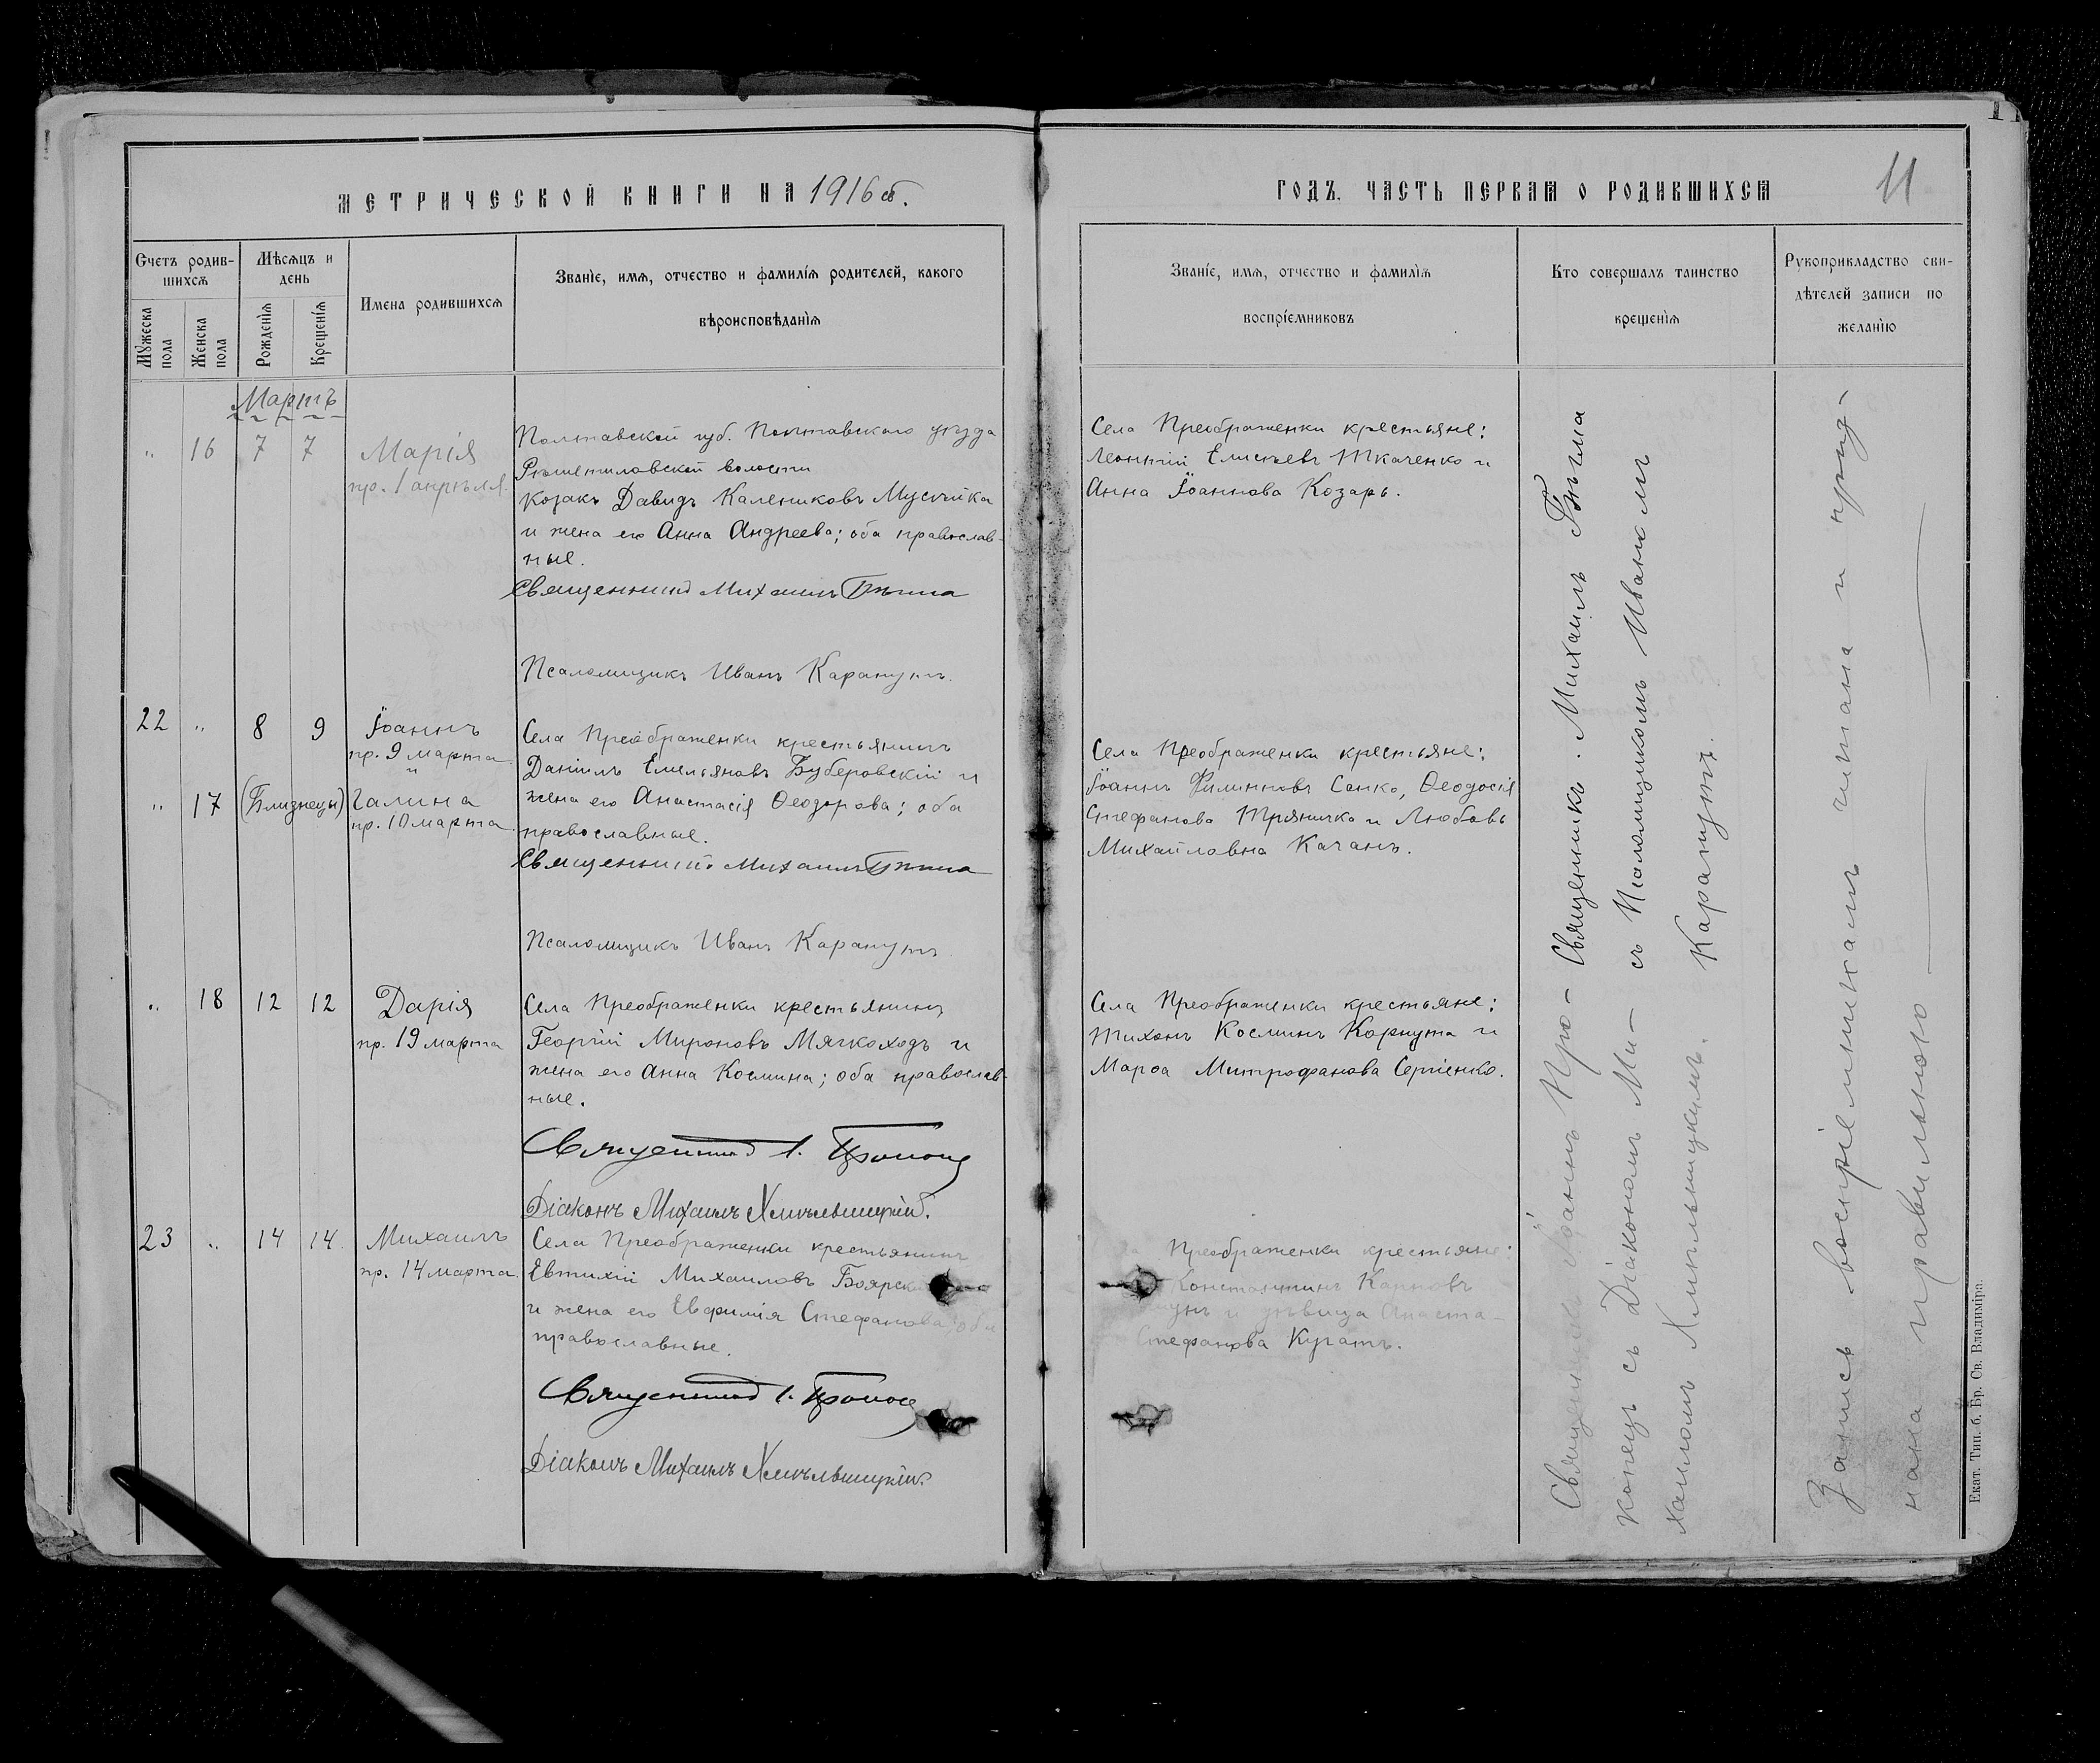 МЕТРИЧЕСКОЙ КНИГИ НА 1916 г.
Счетъ родив-
шихся
Мужеска пола
Женска пола
Мѣсяцъ и
день
Рожденія
Крещенія
Имена родившихся
Званіе, имя, отчество и фамилія родителей, какого
вѣроисповѣданія
Мартъ
„ 16 7 7 Марія
пр. 1 апрѣля.
Полтавской губ. Полтавского уѣзда
Рѣшетиловской волости
козакъ Давидъ Калениковъ Мусійка
и жена его Анна Андреева; оба православ-
ные.
Священникъ Михаилъ
Псаломщикъ Иванъ Карапутъ.
22 „ 8 9 Іоаннъ
пр. 9 марта
и
„ 17 (Близнецы) Галина
пр. 10 марта.
Села Преображенки крестьянинъ
Даніилъ Емельяновъ Буберовскій и
жена его Анастасія Ѳеодорова; оба
православные.
Священникъ Михаилъ
Псаломщикъ Иванъ Карапутъ
„ 18 12 12 Дарія
пр. 19 марта
Села Преображенки крестьянинъ
Георгій Мироновъ Мягкоходъ и
жена его Анна Космина; оба православ-
ные.
Священникъ І. Прокопецъ
Діаконъ Михаилъ Хмѣльницкій.
23 „ 14 14. Михаилъ
пр. 14 марта.
Села Преображенки крестьянинъ
Евтихій Михаиловъ Боярск
и жена его Евфимія Стефанова; оба
православные.
Священникъ І. Прокопецъ
Діаконъ Михаилъ Хмѣльницкій.
ГОДЪ. ЧАСТЬ ПЕРВАЯ О РОДИВШИХСЯ
11
Званіе, имя, отчество и фамилія
воспріемниковъ
Кто совершалъ таинство
крещенія
Рукоприкладство сви-
дѣтелей записи по
желанію
Села Преображенки крестьяне:
Леонтій Елисѣевъ Ткаченко и
Анна Іоаннова Козарь.
Села Преображенки крестьяне:
Іоаннъ Филипповъ Сенко, Ѳеодосія
Стефанова Тряничко и Любовь
Михайловна Качанъ.
Села Преображенки крестьяне:
Тихонъ Косминъ Корнута и
Марѳа Митрофанова Сергіенко.
Преображенки крестьяне:
Константинъ Карповъ
и дѣвица Анаста-
Стефанова Кугатъ.
Священникъ Михаилъ
съ Псаломщикомъ Иваномъ
Карапутъ.
Священникъ Іоаннъ Про-
копецъ съ Діакономъ Ми-
хаиломъ Хмѣльницкимъ.
Запись воспріемникамъ читана и приз-
нана правильною
Екат. Тип. б. Бр. Св. Владиміра.